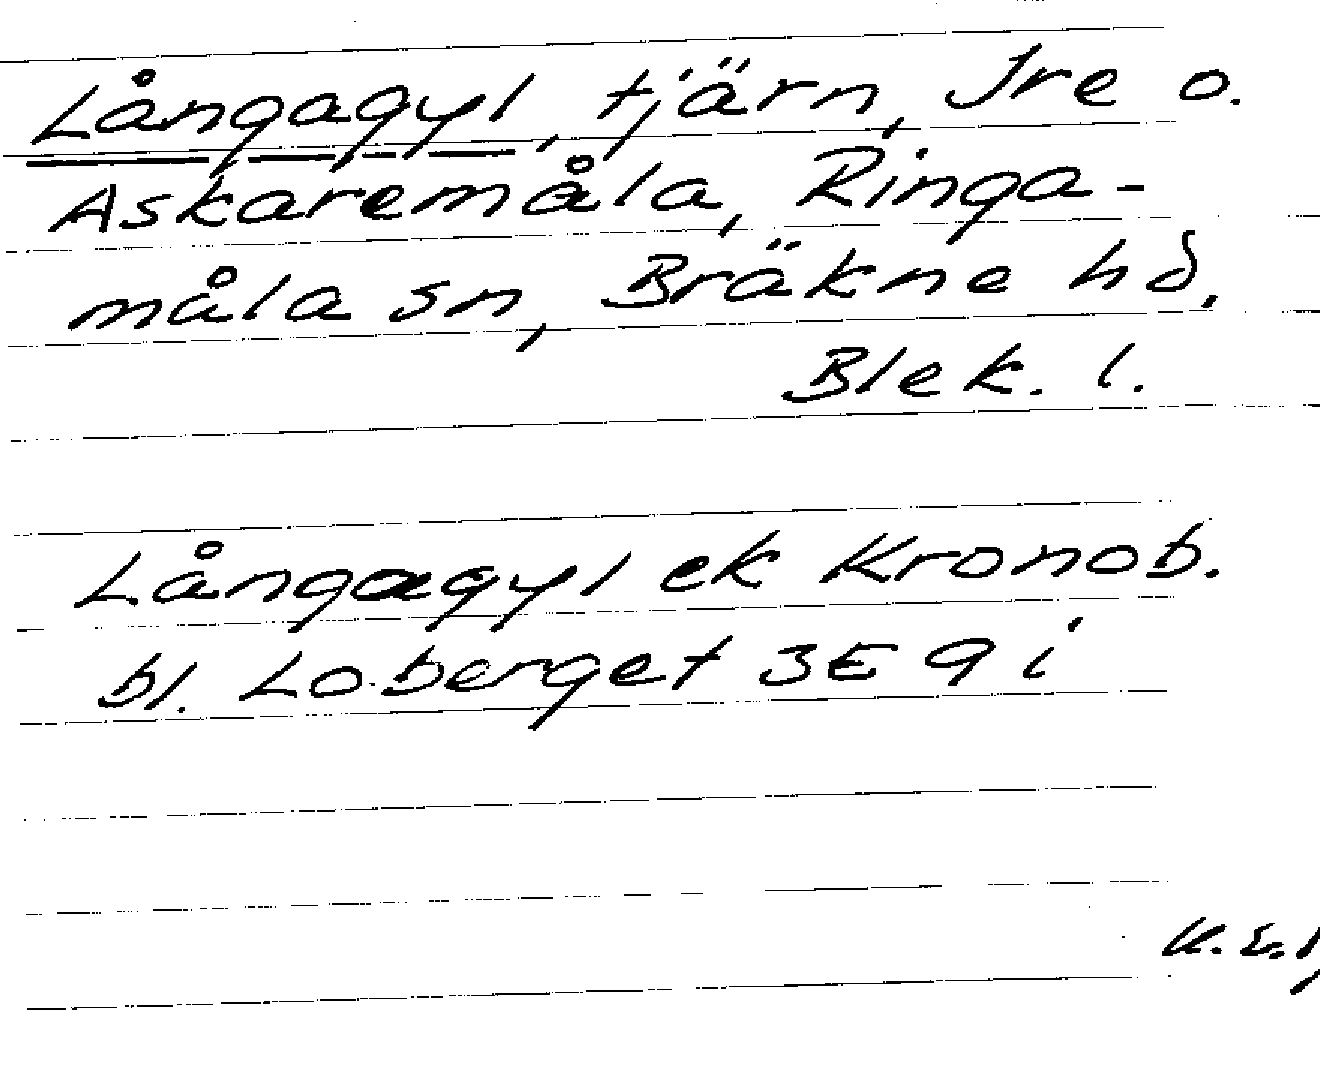 Långagyl, tjärn, Ire o.
Askaremåla, Ringa-
måla sn, Bräkne hd,
Blek. l.
Långagyl ek Kronob.
bl. Loberget 3E 9i